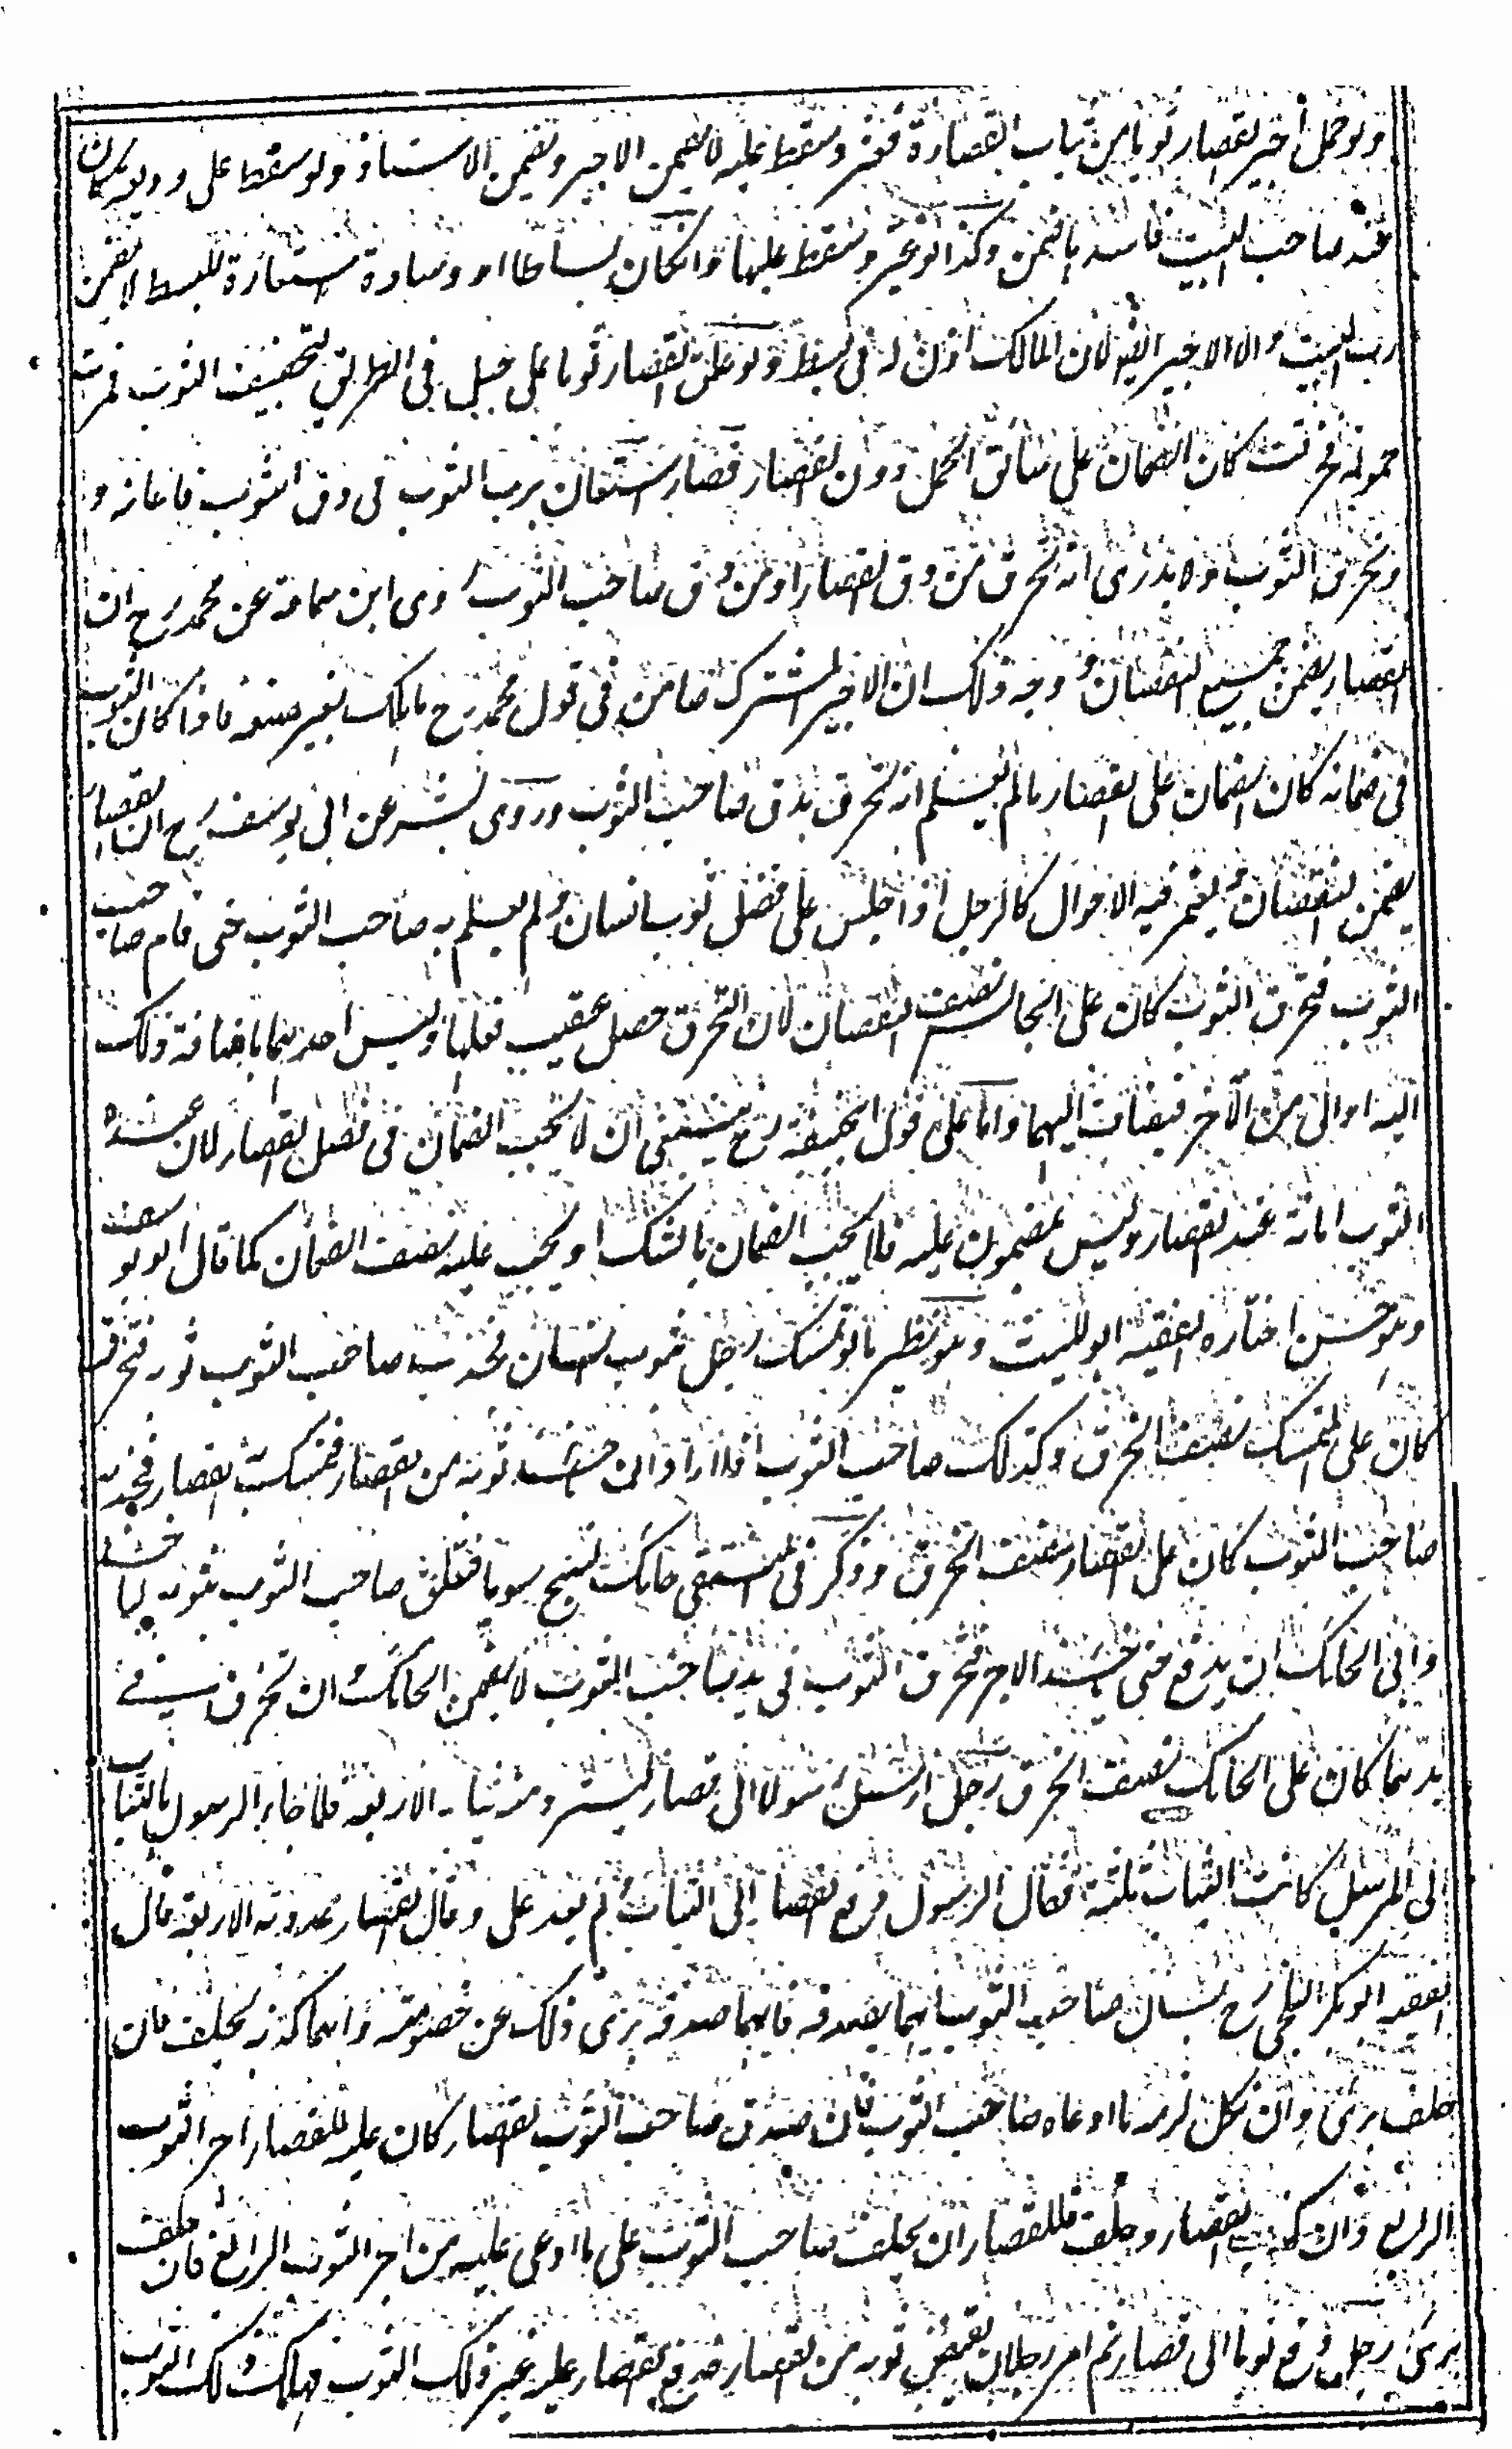 ولو حمل أجير القصار ثوبا من ثياب القصارة فعثر وسقط عليه لا يضمن الاجير ويضمن الاستاذ ولو سقط على وديعة كان
عند صاحب البيت فافسدها يضمن وكذا لو عثر وسقط عليها وان كان بساطا او وسادة استعارة للبسط لا يضمن
رب البيت ولا الاجير ايضا لان المالك اذن له في البسط ولو علق القصار ثوبا على حبل في الطريق لتجفيف الثوب فمرت
حمولة فخرقت كان الضمان على سائق الحمل دون القصار قصار استعان برب الثوب في دق الثوب فاعانه و
وتخرق الثوب ولا يدرى انه تخرق من دق القصار او من دق صاحب الثوب روى ابن سماعة عن محمد رح ان
القصار يضمن جميع النقصان ووجه ذلك ان الاجير المشترك ضامن في قول محمد رح ما هلك بغير صنعه فاذا كان الثوب
في ضمانه كان الضمان على القصار ما لم يعلم انه تخرق بدق صاحب الثوب وروى بشر عن ابي يوسف رح ان القصار
يضمن النقصان ويعتبر فيه الاحوال كالرجل اذا جلس على فضل ثوب انسان ولم يعلم به صاحب الثوب حتى قام صاحب
الثوب فتخرق الثوب كان على الجالس نصف النقصان لان التخرق حصل عقيب فعلهما وليس احدهما باضافة ذلك
اليه اولى من الآخر فيضاف اليهما واما على قول ابي حنيفة رح ينبغي ان لا يجب الضمان في فصل القصار لان عنده
الثوب امانة عند القصار وليس بمضمون عليه فلا يجب الضمان بالشك او يجب عليه نصف الضمان كما قال ابو يوسف
وهو حسن اختاره الفقيه ابو الليث وهو نظير ما لو تمسك رجل بثوب انسان فجذب صاحب الثوب ثوبه فتخرق
كان على المتمسك نصف الخرق وكذلك صاحب الثوب اذا اراد ان يأخذ ثوبه من القصار فتمسك به القصار فجذبه
صاحب الثوب كان على القصار نصف الخرق وذكر في المنتقى حائك نسج ثوبا فتعلق صاحب الثوب بثوبه ليأخذه
وابى الحائك ان يدفع حتى يأخذ الاجر فتخرق الثوب في يد صاحب الثوب لا يضمن الحائك وان تخرق في
يديهما كان على الحائك نصف الخرق رجل ارسل رسولا الى قصار ليسترد منه ثيابه الاربعة فلما جاء الرسول بالثياب
الى المرسل كانت الثياب ثلثة فقال الرسول دفع القصار الى الثياب ولم يعد على وقال القصار عددته الاربعة قال
الفقيه ابو بكر البلخي رح يسأل صاحب الثوب ايهما يصدقه فايهما صدقه برئ ذلك عن خصومته وايهما كذبه يحلف فان
حلف برئ وان نكل لزمه ما ادعاه صاحب الثوب فان صدق صاحب الثوب القصار كان عليه للقصار اجر الثوب
الرابع وان كذب القصار وحلف فللقصار ان يحلف صاحب الثوب على ما ادعى عليه من اجر الثوب الرابع فان حلف
برئ رجل دفع ثوبا الى قصار ثم امر رجلا ان يقبض ثوبه من القصار فدفع القصار عليه غير ذلك الثوب فهلك ذلك الثوب